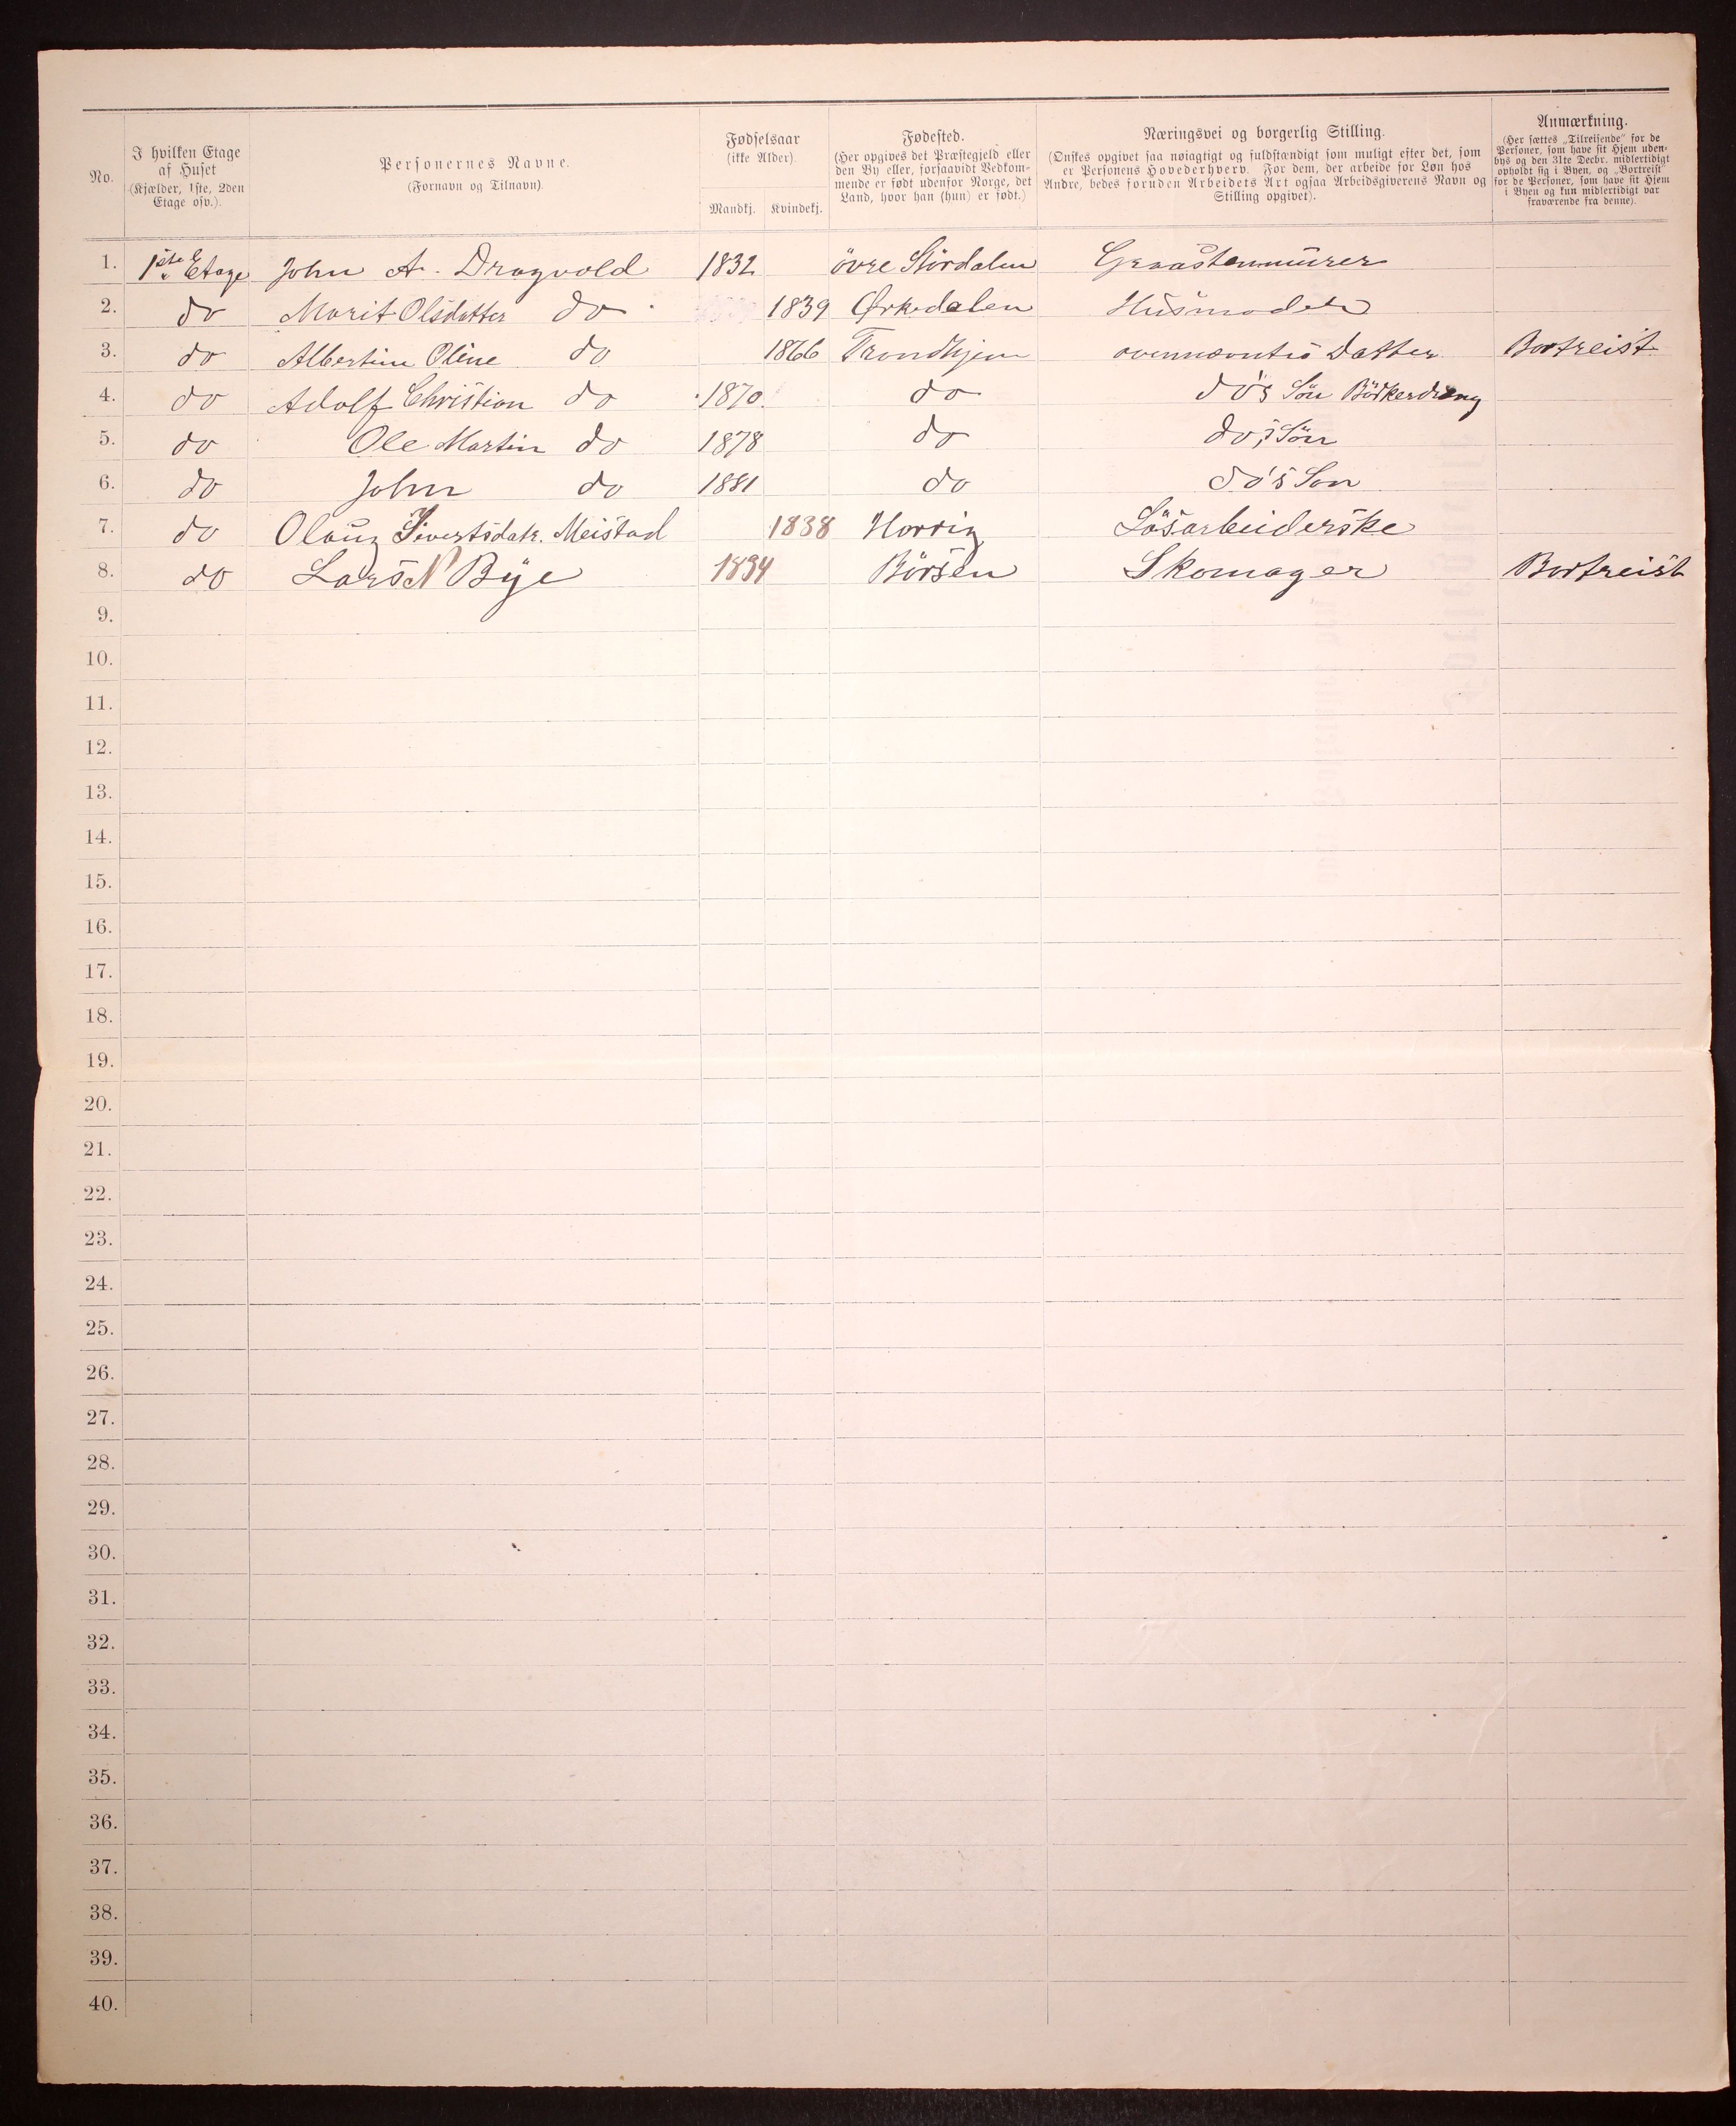 No.
I hvilken Etage
af Huset
(Kjælder, 1ste, 2den
Etage osv.).
Personernes Navne.
(Fornavn og Tilnavn).
Fødselsaar
(ikke Alder).
Mandkj. Kvindekj.
Fødested.
(Her opgives det Præstegjeld eller
den By eller, forsaavidt Vedkom-
mende er født udenfor Norge, det
Land, hvor han (hun) er født.)
Næringsvei og borgerlig Stilling.
(Ønskes opgivet saa nøiagtigt og fuldstændigt som muligt efter det, som
er Personens Hovederhverv. For dem, der arbeide for Løn hos
Andre, bedes foruden Arbeidets Art ogsaa Arbeidsgiverens Navn og
Stilling opgivet).
Anmærkning.
(Her sættes „Tilreisende" for de
Personer, som have sit Hjem uden-
bys og den 31te Decbr. midlertidigt
opholdt sig i Byen, og „Bortreist"
for de Personer, som have sit Hjem
i Byen og kun midlertidigt var
fraværende fra denne).
1. 1ste Etage John A. Dragvold 1832 övre Stördalen Graastenmürer
2. do Marit Olsdatter do 1839 Ørkedalen Husmoder
3. do Albertine Oline do 1866 Trondhjem ovennævntes Datter Bortreist
4. do Adolf Christian do 1870 do do's Sön Bödkerdreng
5. do Ole Martin do 1878 do do's Sön
6. do John do 1881 do do's Son
7. do Olaug Sivertsdatr. Meistad 1838 Horrig Lösarbeiderske
8. do Lars N Bye 1834 Börsen Skomager Bortreist
9.
10.
11.
12.
13.
14.
15.
16.
17.
18.
19.
20.
21.
22.
23.
24.
25.
26.
27.
28.
29.
30.
31.
32.
33.
34.
35.
36.
37.
38.
39.
40.